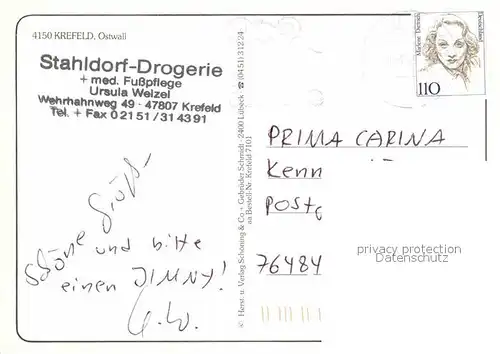 4150 KREFELD, Ostwall
Stahldorf-Drogerie
+ med. Fußpflege
Ursula Weizel
Wehrhahnweg 49 - 47807 Krefeld
Tel. + Fax 0 21 51 / 31 43 91
Schöne Grüße
und bitte
einen JIMNY!
U.W.
© Herst. u. Verlag Schöning & Co + Gebrüder Schmidt · 2400 Lübeck ☎ (04 51) 3 12 24
aa Bestell-Nr. Krefeld 7101
Marlene Dietrich
Deutschland
110
PRIMA CARINA
Kenn
POST
76484
privacy protection
Datenschutz